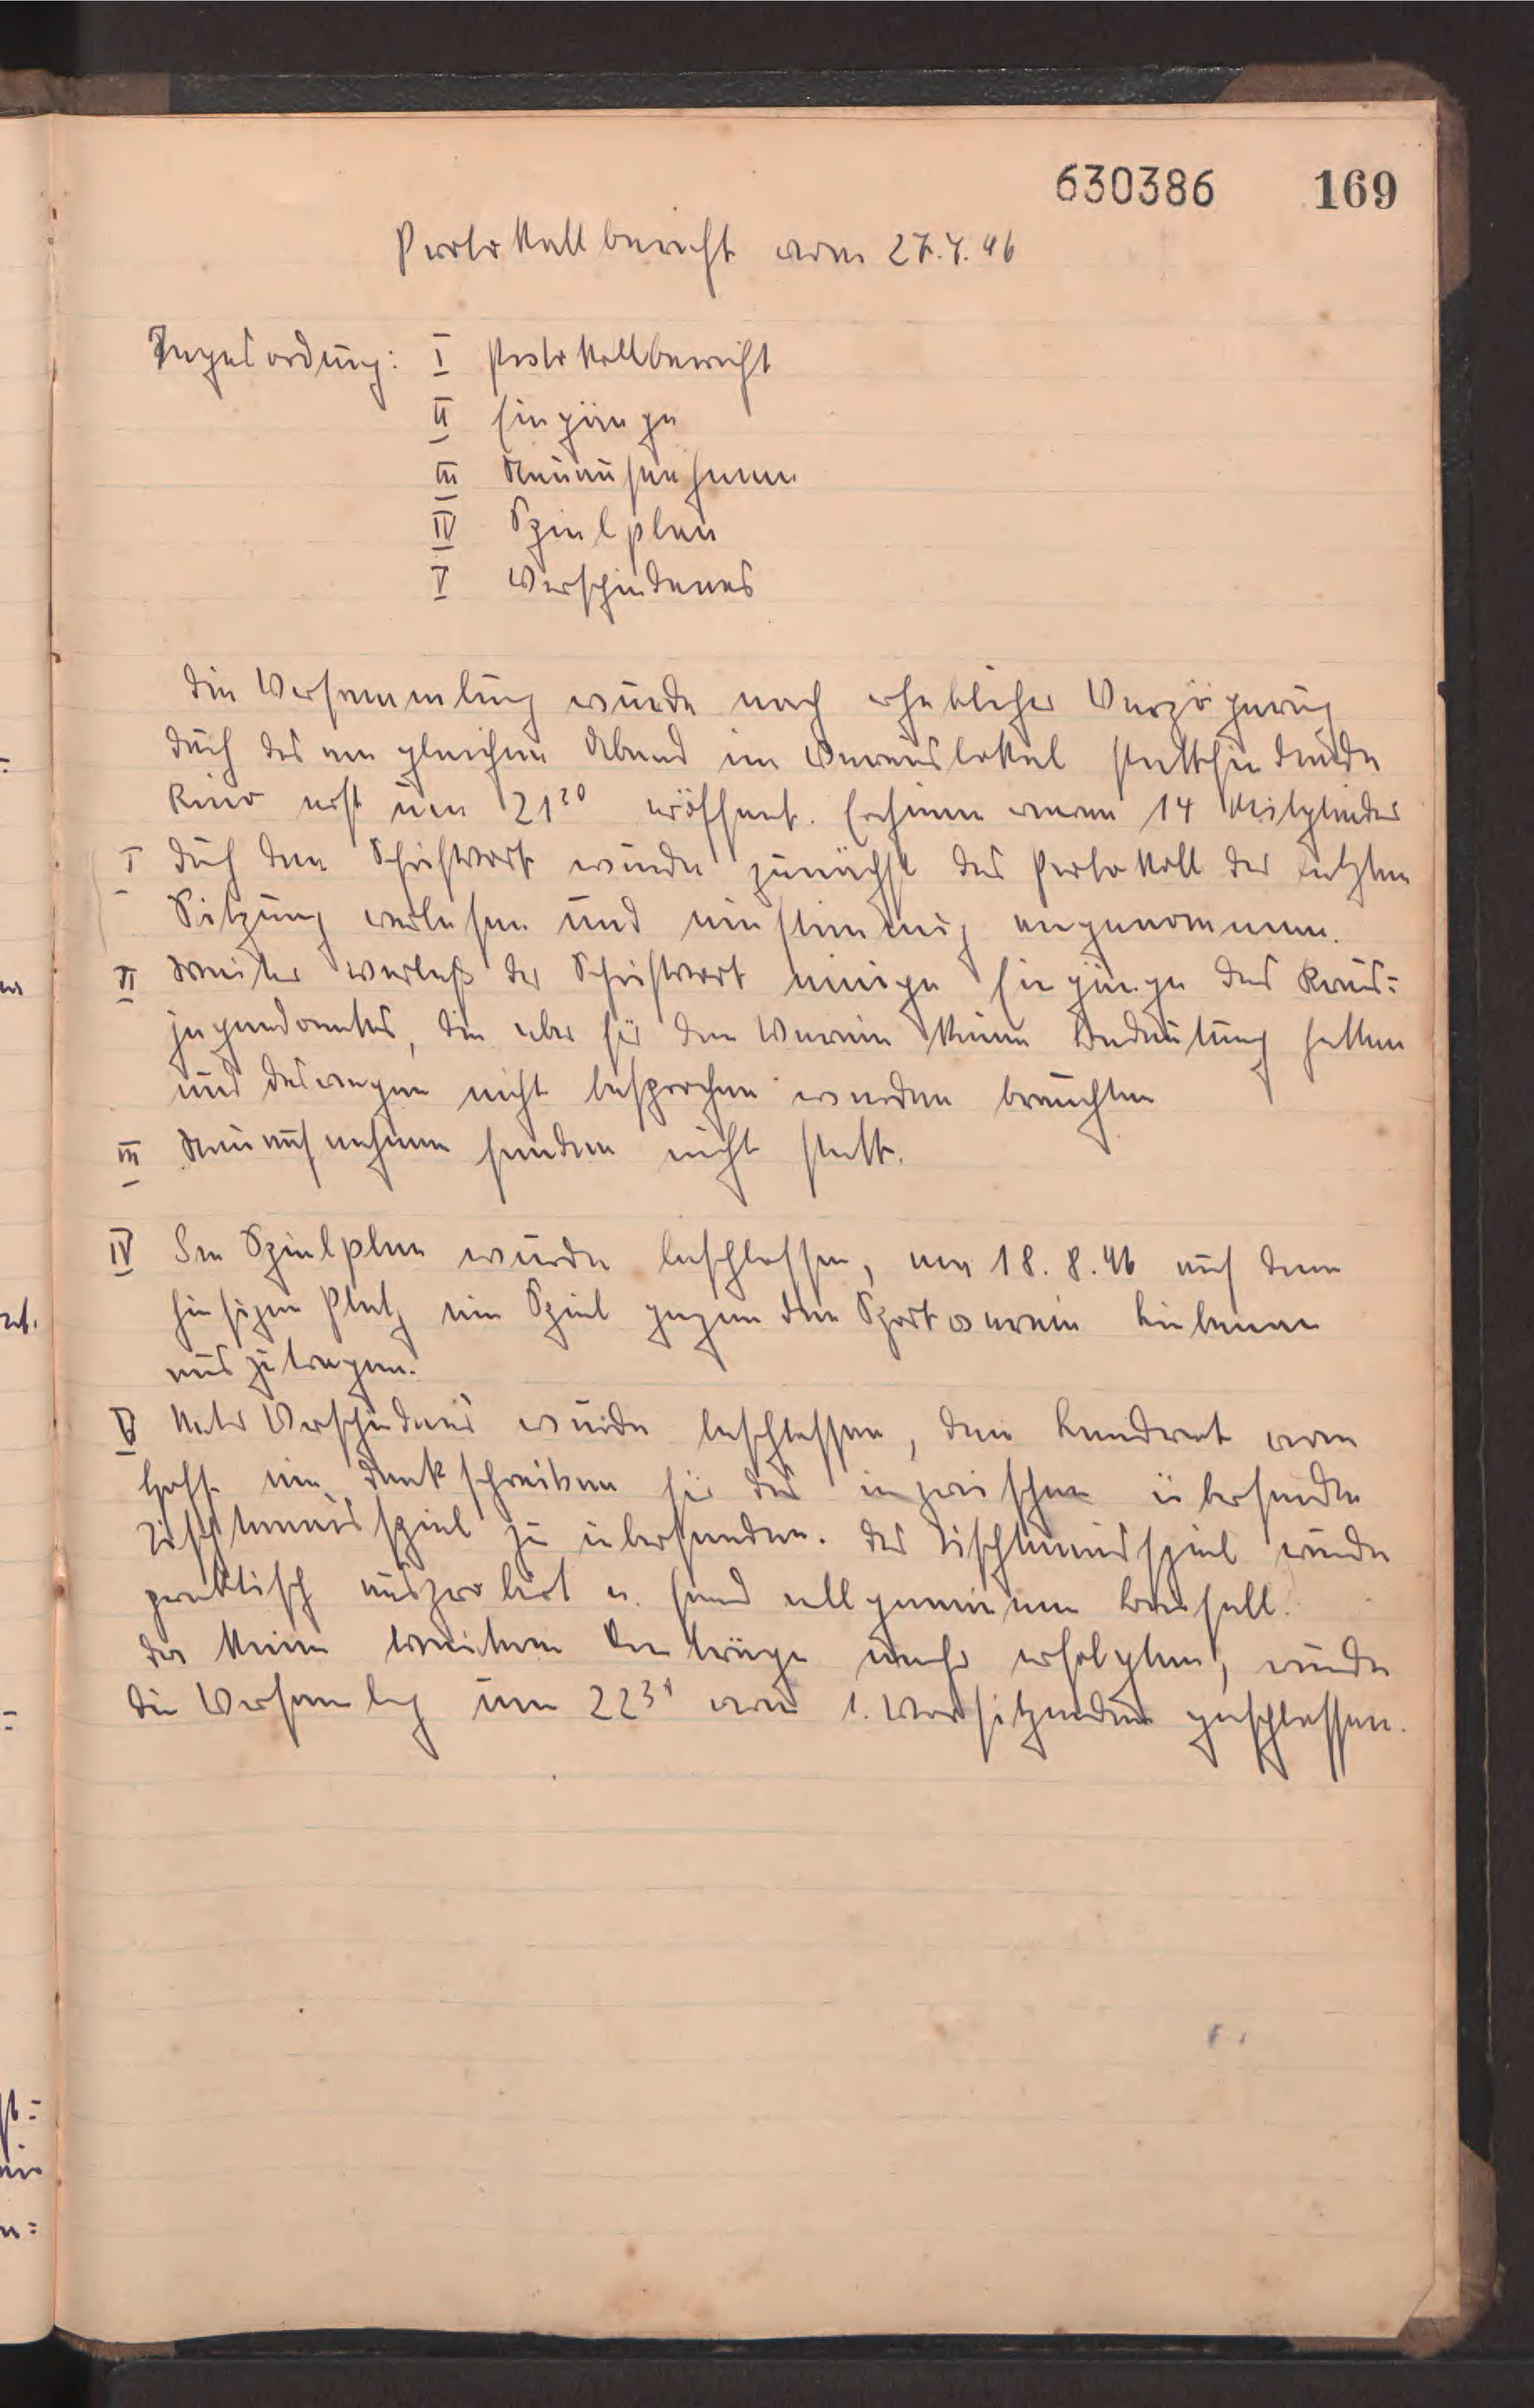 630386 169
Protokollbericht vom 27.7.46
Tagesordung: I Protokollbericht
II Eingänge
III Neuaufnahmen
IV Spielplan
V Verschiedenes
Die Versammlung wurde nach erheblicher Verzögerung
durch das am gleichen Abend im Vereinslokal stattfindende
Kino erst um 21²⁰ eröffnet. Erschienen waren 14 Mitglieder
I Durch den Schriftwart wurde zunächst das Protokoll der letzten
Sitzung verlesen und einstimmig angenommen.
II Weiter verlaß der Schriftwart einige Eingänge des Kreis=
jugendamtes, die aber für den Verein keine Bedeutung hatten
und deswegen nicht besprochen werden brauchten
III Neuaufnahmen fanden nicht statt.
IV Im Spielplan wurde beschlossen, am 18.8.46 auf dem
hiesigen Platz ein Spiel gegen den Sportverein
auszutragen.
V Unter Verschiedenes wurde beschlossen, dem Landrat vom
Hoff ein Dankschreiben für das inzwischen übersandte
Tischtennisspiel zu übersenden. Das Tischtennisspiel wurde
praktisch ausprobiert u. fand allgemeinen Beifall.
Da keine weiteren Anträge mehr erfolgten, wurde
die Versammlung um 22³⁰ vom 1. Vorsitzenden geschlossen.